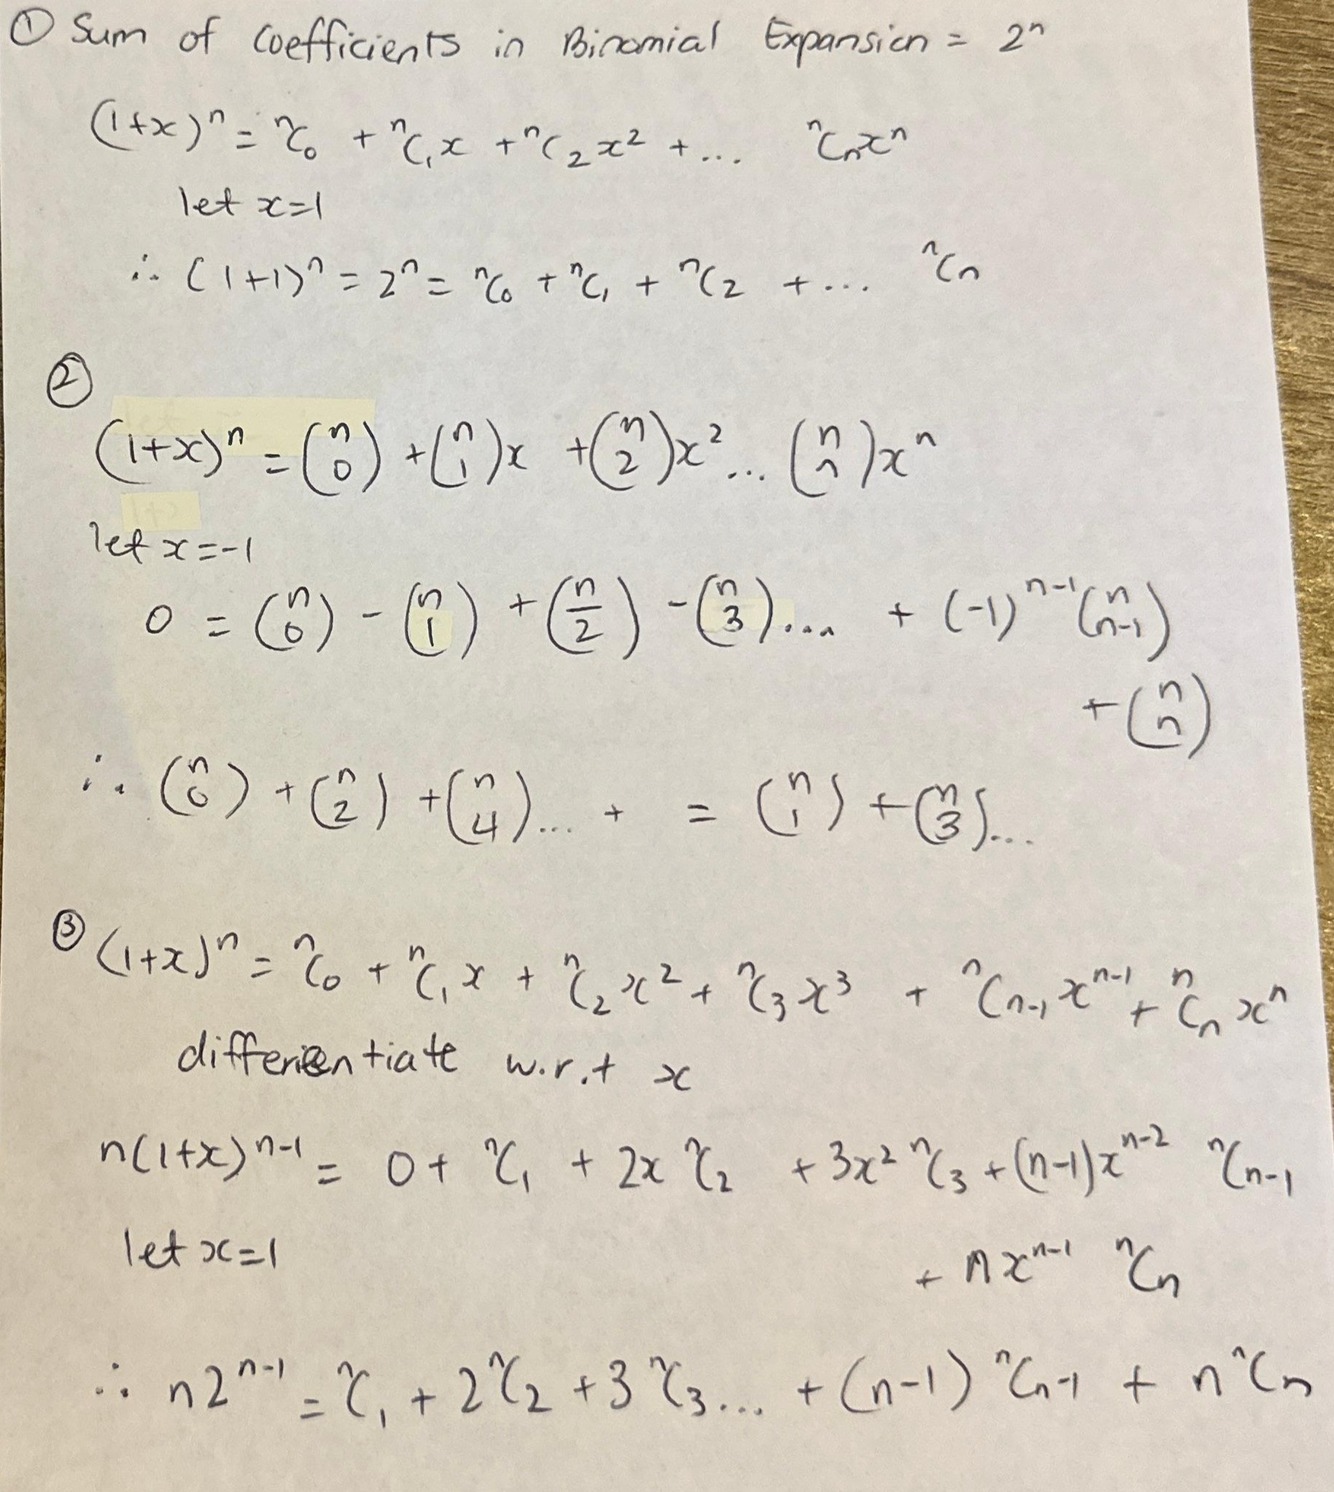 ① Sum of Coefficients in Binomial Expansion = 2ⁿ
(1+x)ⁿ = ⁿC₀ + ⁿC₁x + ⁿC₂x² + ... ⁿCₙxⁿ
let x=1
∴ (1+1)ⁿ = 2ⁿ = ⁿC₀ + ⁿC₁ + ⁿC₂ + ... ⁿCₙ
②
(1+x)ⁿ = (n 0) + (n 1)x + (n 2)x² ... (n n)xⁿ
let x=-1
0 = (n 0) - (n 1) + (n/2) - (n 3)... + (-1)ⁿ⁻¹(n n-1)
+ (n n)
∴ (n 0) + (n 2) + (n 4)... + = (n 1) + (n 3)...
③ (1+x)ⁿ = ⁿC₀ + ⁿC₁x + ⁿC₂x² + ⁿC₃x³ + ⁿCₙ₋₁xⁿ⁻¹ + ⁿCₙxⁿ
differentiate w.r.t x
n(1+x)ⁿ⁻¹ = 0 + ⁿC₁ + 2x ⁿC₂ + 3x² ⁿC₃ + (n-1)xⁿ⁻² ⁿCₙ₋₁
let x=1 + nxⁿ⁻¹ ⁿCₙ
∴ n2ⁿ⁻¹ = ⁿC₁ + 2ⁿC₂ + 3ⁿC₃... + (n-1)ⁿCₙ₋₁ + nⁿCₙ